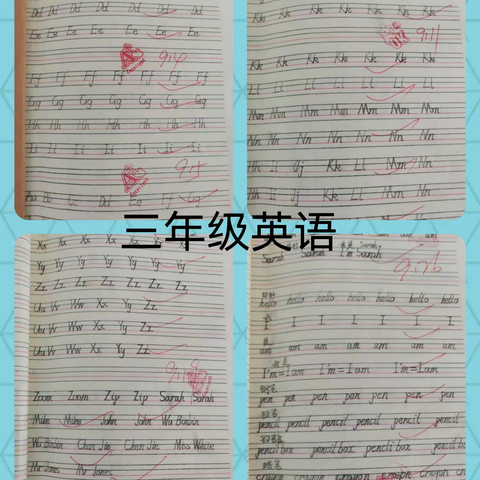 Dd Dd Dd Dd Dd Dd
Ee Ee Ee Ee Ee Ee
9.14
Ff Ff Ff Ff Ff Ff
Gg Gg Gg Gg Gg Gg
Hh Hh Hh Hh Hh Hh
Ii Ii Ii Ii Ii Ii
9.15
Aa Bb Cc Dd Ee Ff Gg
Kk Kk Kk Kk Kk Kk
Kk Kk Kk Kk Kk Kk
Ll Ll Ll Ll Ll Ll
Ll Ll Ll Ll Ll Ll
Mm Mm Mm Mm Mm Mm
Nn Nn Nn Nn Nn Nn
Hh Ii Jj Kk Ll Mm Nn
Hh Ii Jj Kk Ll Mm Nn
三年级英语
Xx Xx Xx Xx Xx Xx
Yy Yy Yy Yy Yy Yy
Zz Zz Zz Zz Zz Zz
Uu Vv Ww Xx Yy Zz
Uu Vv Ww Xx Yy Zz
Uu Vv Ww Xx Yy Zz
Zoom Zoom Zip Zip Sarah Sarah
Mike Mike John John Wu Binbin
Wu Binbin Chen Jie Chen Jie Miss White
Mr Jones Mr Jones
Sarah Sarah I'm Sarah
9.26
hello hello hello hello hello hello
I I I I I I
am am am am am am
I'm=I am I'm=I am I'm=I am
pen pen pen pen pen pen
pencil pencil pencil pencil pencil pencil
pencil box pencil box pencil box
crayon crayon crayon crayon crayon